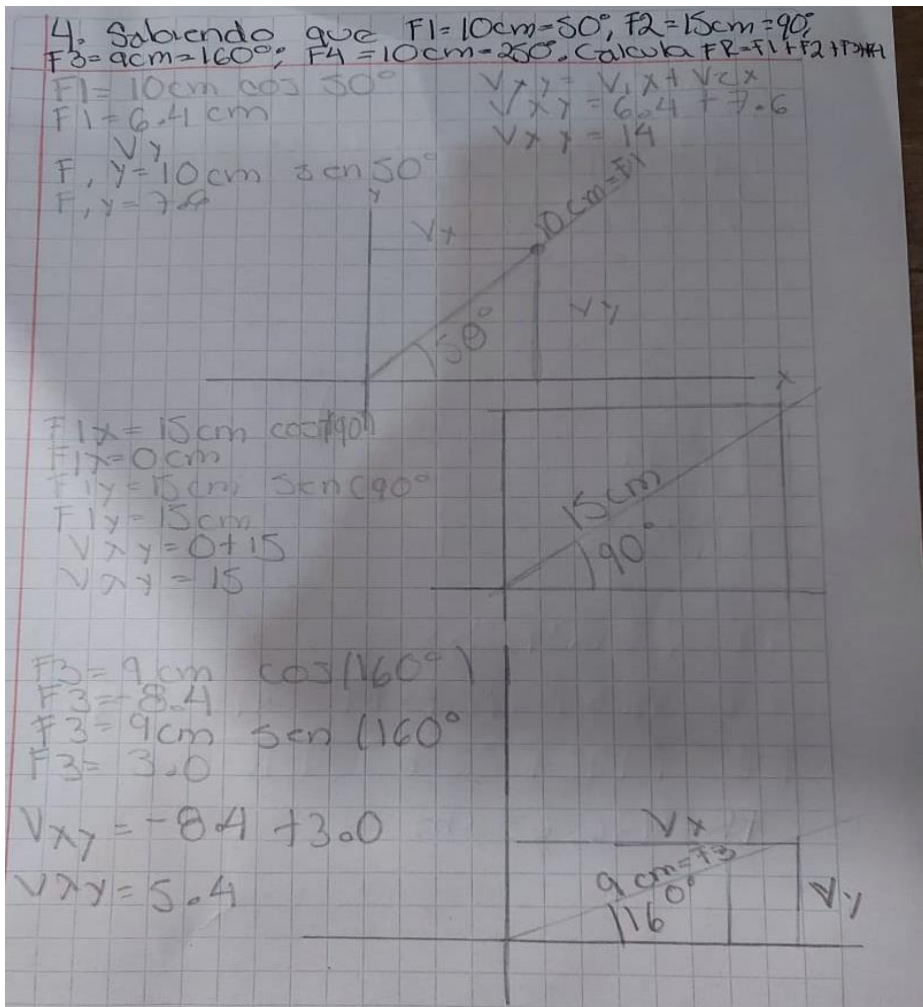 4. Sabiendo que F1=10cm=50°, F2=15cm=90°,
F3=9cm=160°; F4=10cm=250°. Calcula FR=F1+F2+F3+F4
F1=10cm cos 50°
F1=6.4cm
Vy
F,y=10cm sen50°
F,y=7.6
Vxy=V,x+V2x
Vxy=6.4+7.6
Vxy=14
y
Vx
10cm=F1
50°
Vy
x
F1x=15cm cos(90)
F1x=0cm
F1y=15cm sen(90°
F1y=15cm
Vxy=0+15
Vxy=15
15cm
90°
F3=9cm cos(160°)
F3=-8.4
F3=9cm sen (160°
F3=3.0
Vxy=-8.4+3.0
Vxy=5.4
Vx
9cm=F3
160°
Vy